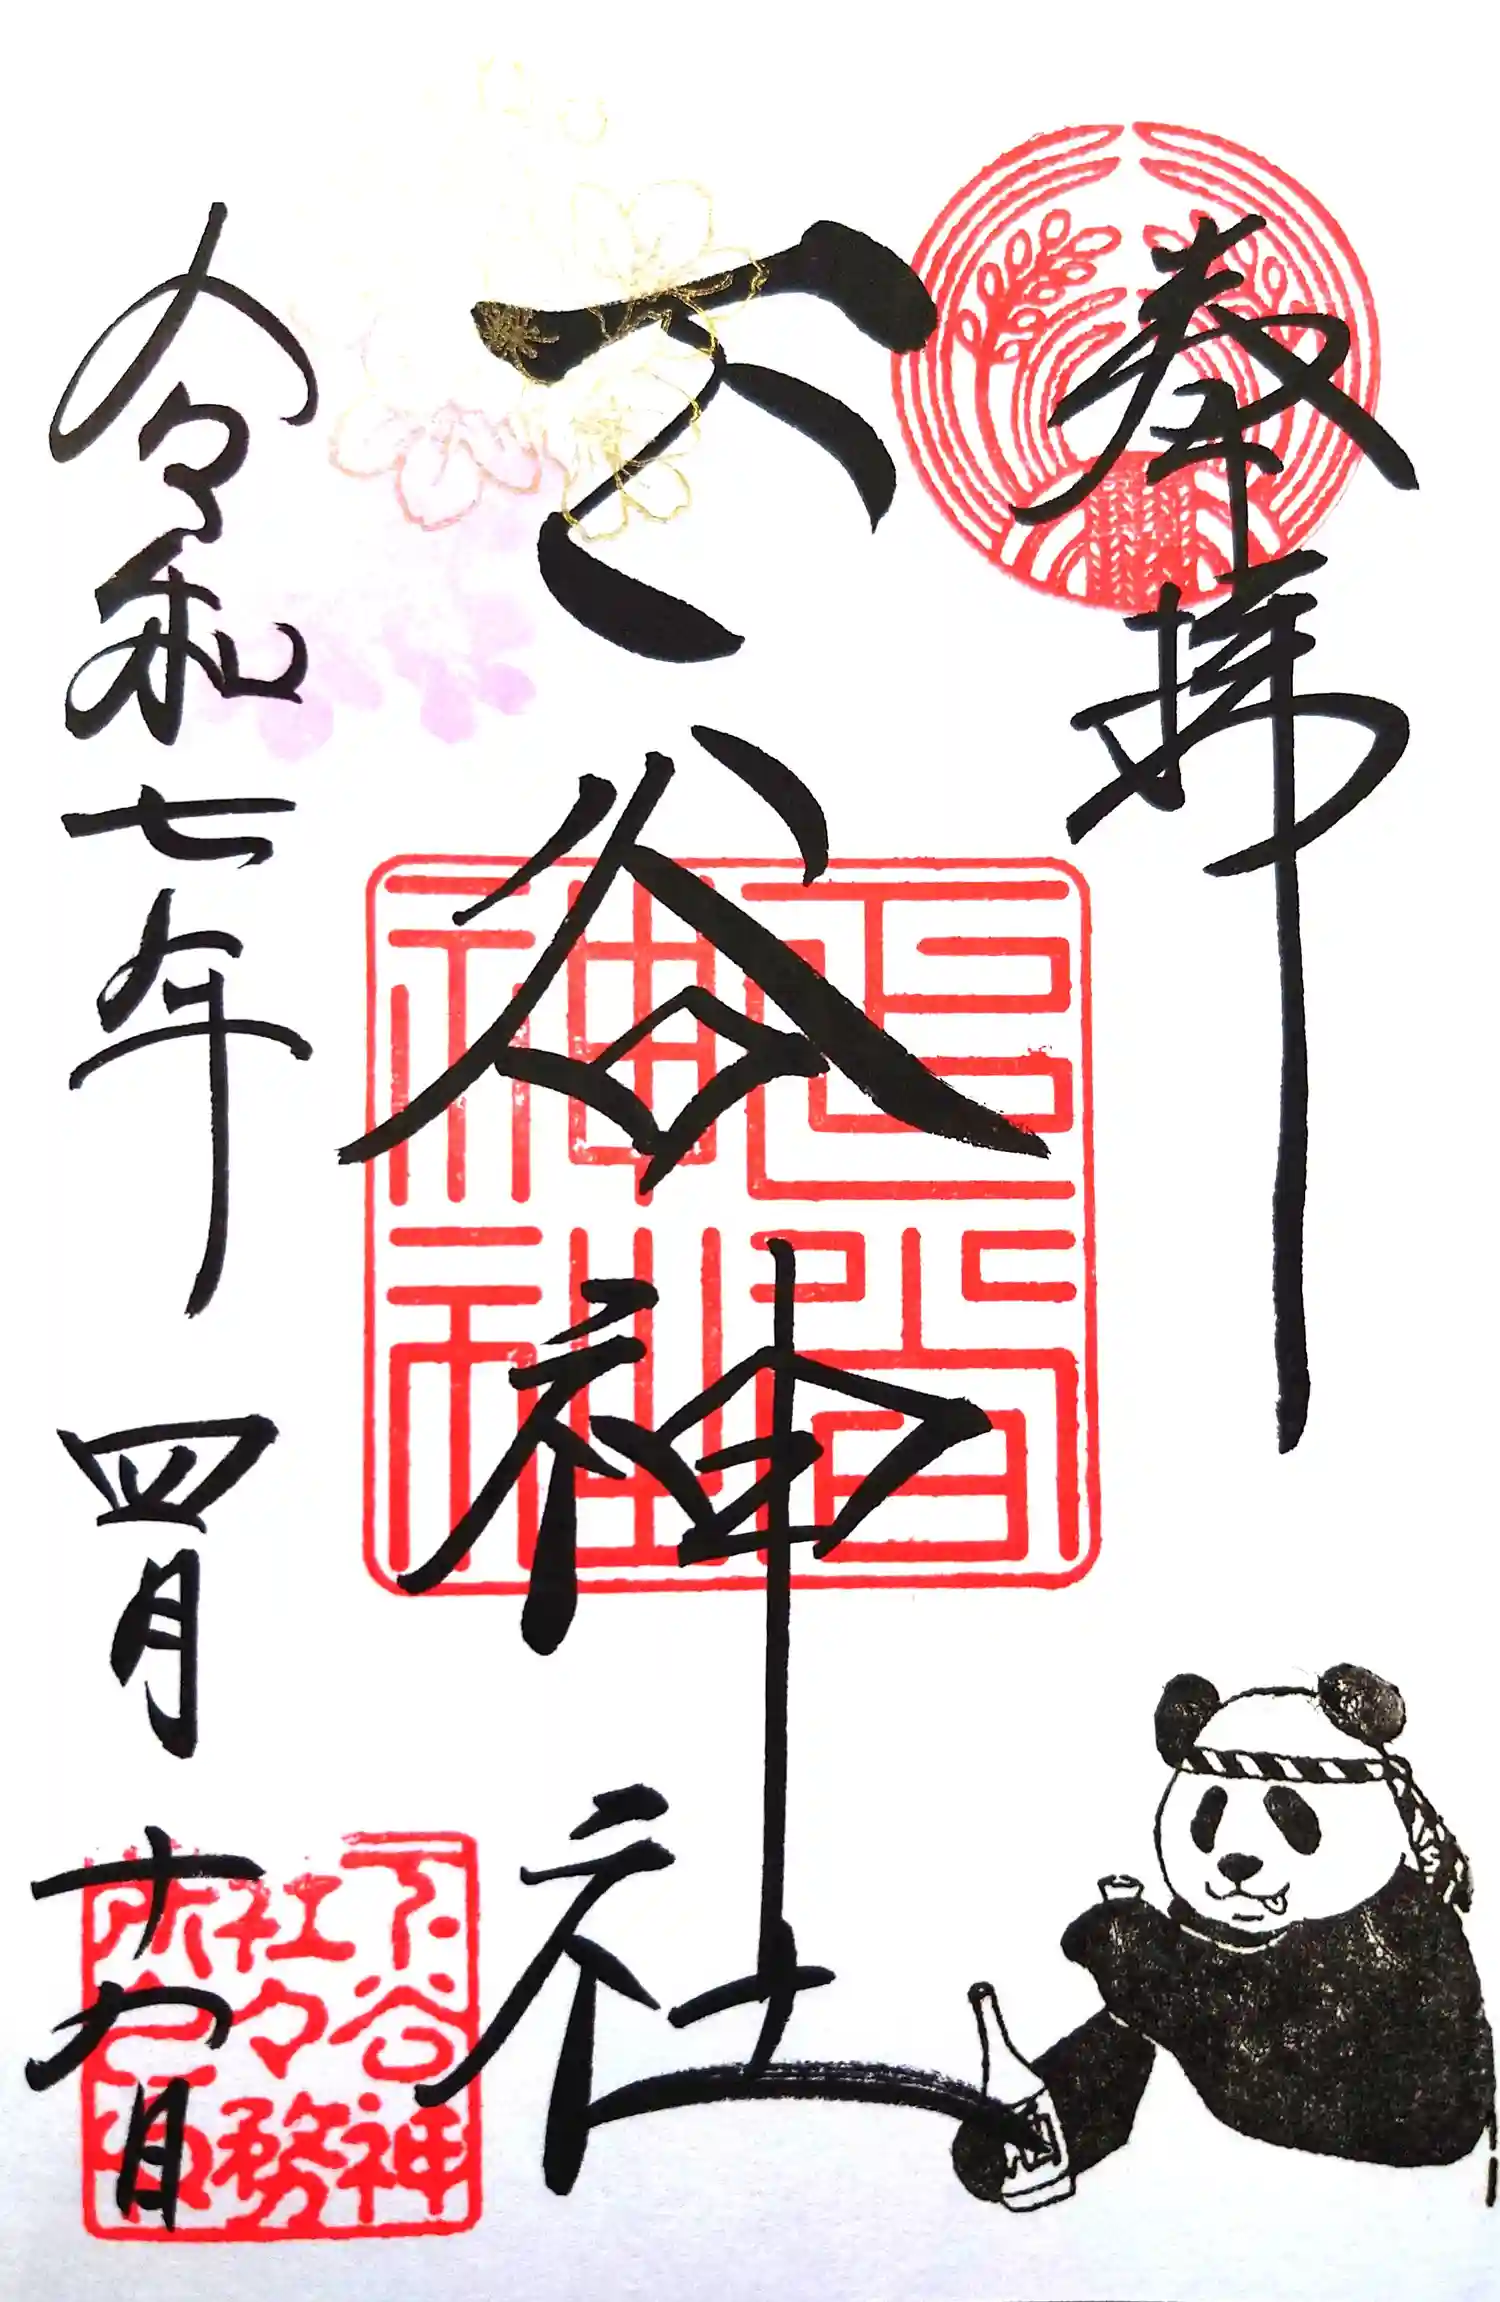 奉拝
下谷神社
令和七年四月十
下谷
神社
下谷神
社々務
所之印
酒